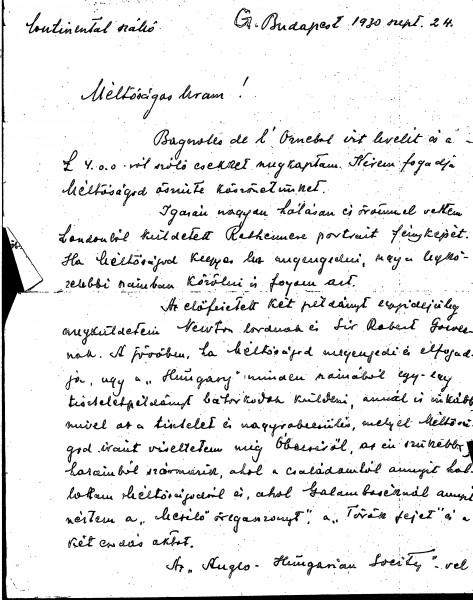 Continental szálló Budapest 1930 szept. 24.
Méltóságos Uram!
Bagnoles de l'Ornebol irt levelét és a
£ 4.0.0-ról szóló csekket megkaptam. Kérem fogadja
Méltóságod őszinte köszönetünket.
Igazán nagyon hálásan és örömmel vettem
Londonból küldetett Rothermere portrait fényképét.
Ha Méltóságod kegyes lesz megengedni, úgy a legkö-
zelebbi számban közölni is fogom azt.
Az előfizetett két példányt egyidejüleg
megküldetem Newton lordnak és Sir Robert
nak. A jövőben, ha Méltóságod megengedi és elfogad-
ja, ugy a „Hungary" minden számából egy-egy
tiszteletpéldányt bátorkodok küldeni, annál is inkább
mivel az a tisztelet és nagyrabecsülés, melyet Méltósá-
god iránt viseltetem még Óbecséről, az én szűkebb
hazámból származik, ahol a családomtól annyit hal-
lottam Méltóságodról és, ahol Galamboséknál annyit
néztem a „ öregasszonyt", a „Török fejet" és a
két csodás aktot.
Az „Anglo-Hungarian Society"-vel